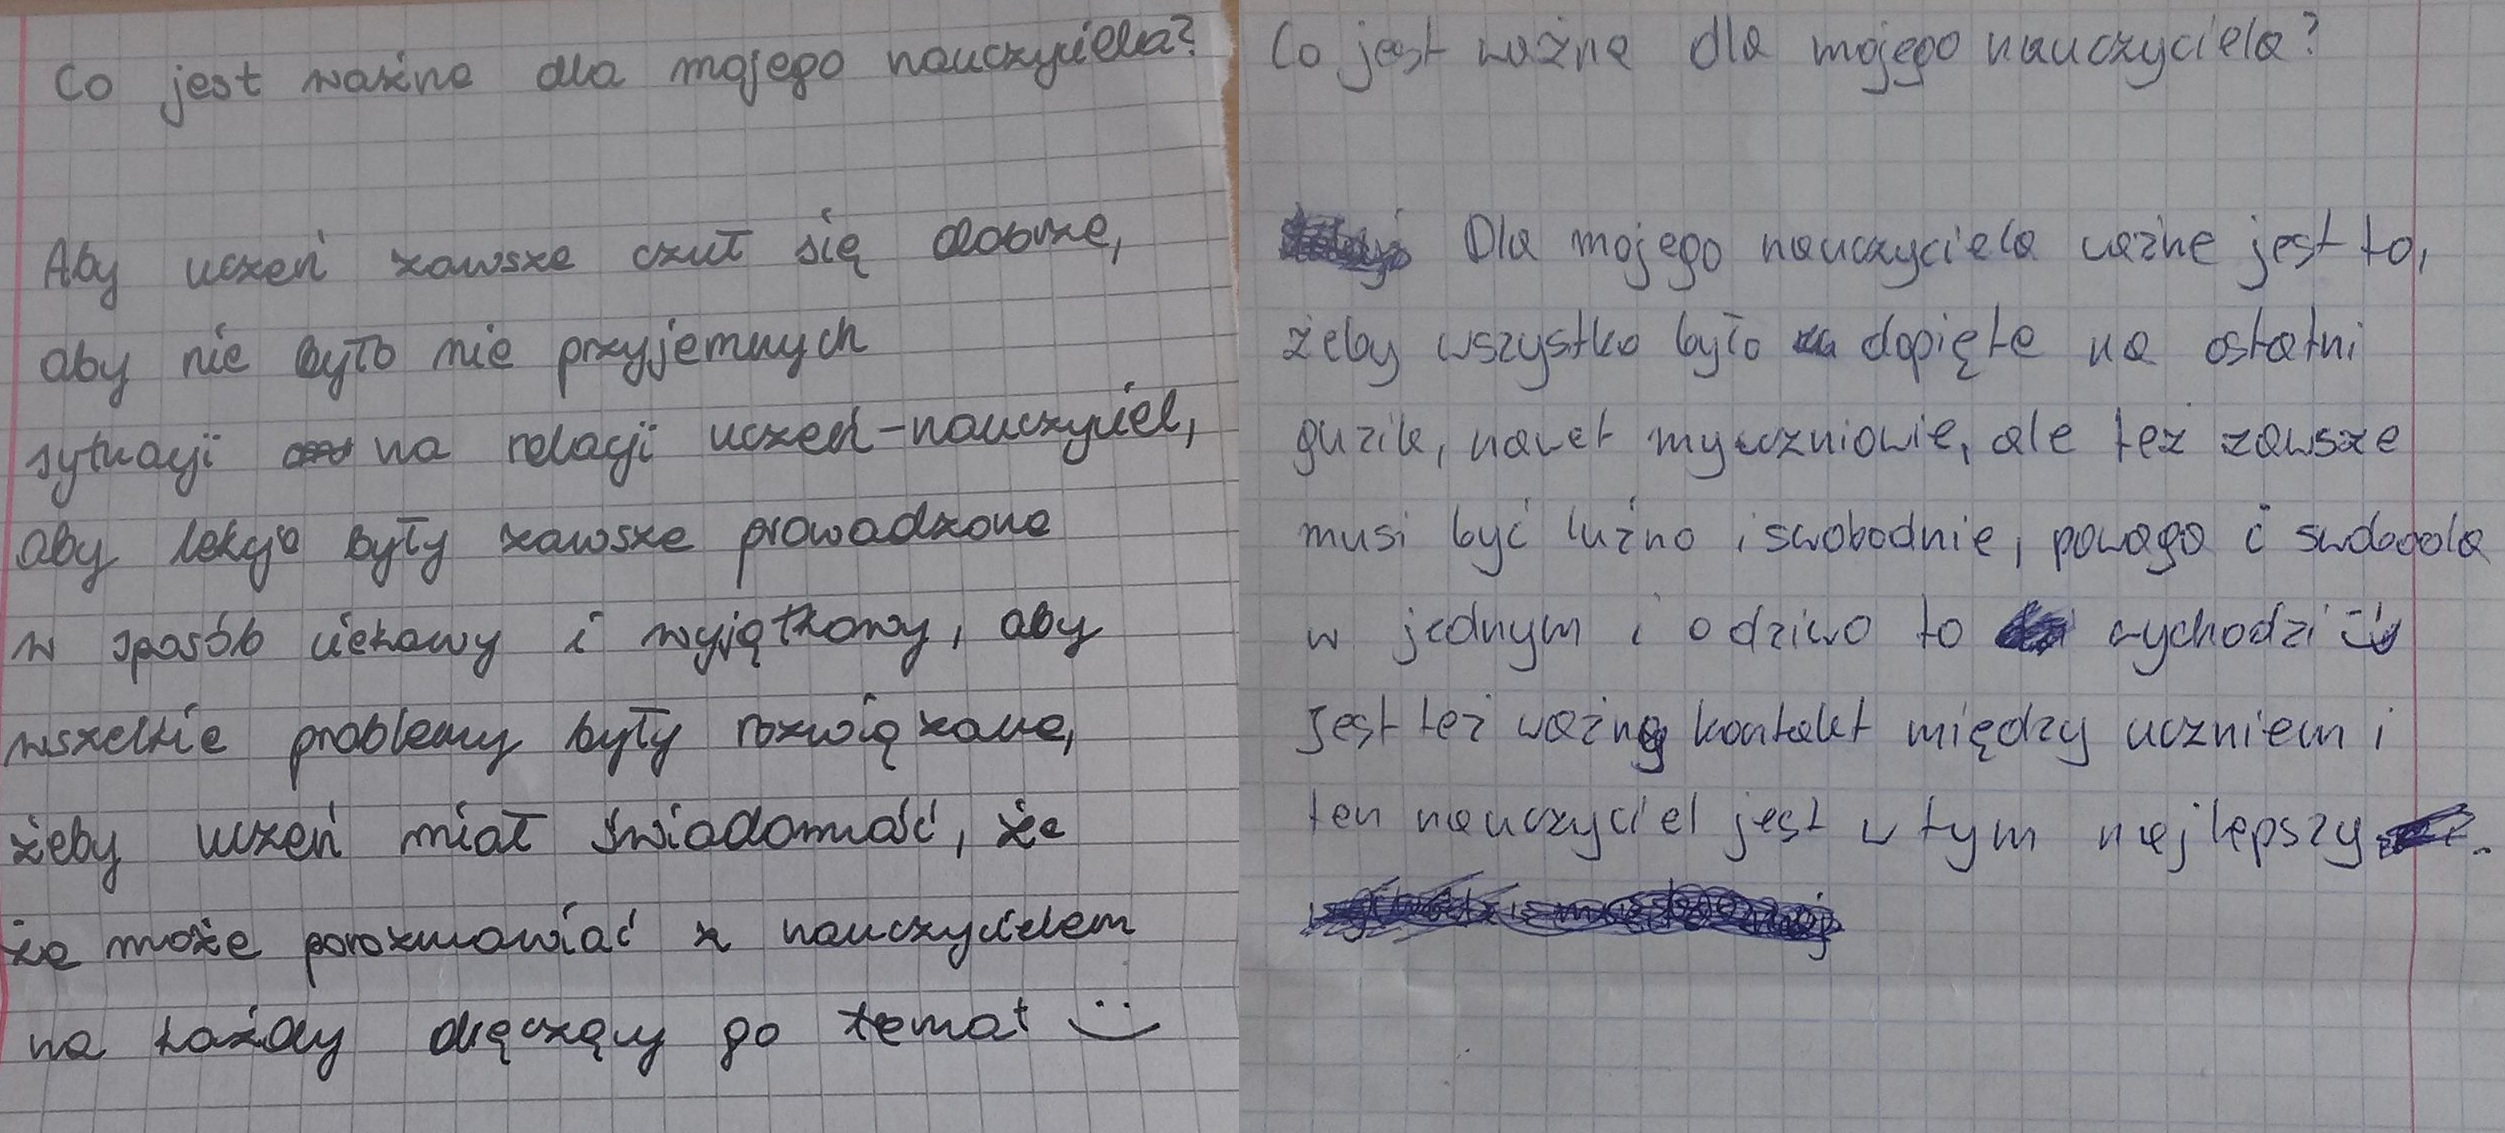 Co jest ważne dla mojego nauczyciela?
Aby uczeń zawsze czuł się dobrze,
aby nie było nie przyjemnych
sytuacji na relacji uczeń-nauczyciel,
aby lekcje były zawsze prowadzone
w sposób ciekawy i wyjątkowy, aby
wszelkie problemy były rozwiązane,
żeby uczeń miał świadomość, że
że może porozmawiać z nauczycielem
na każdy dręczący go temat :)
Co jest ważne dla mojego nauczyciela?
Dla mojego nauczyciela ważne jest to,
żeby wszystko było dopięte na ostatni
guzik, nawet my uczniowie, ale też zawsze
musi być luźno i swobodnie, powaga i swoboda
w jednym i o dziwo to wychodzi :)
Jest też ważny kontakt między uczniem i
ten nauczyciel jest w tym najlepszy.